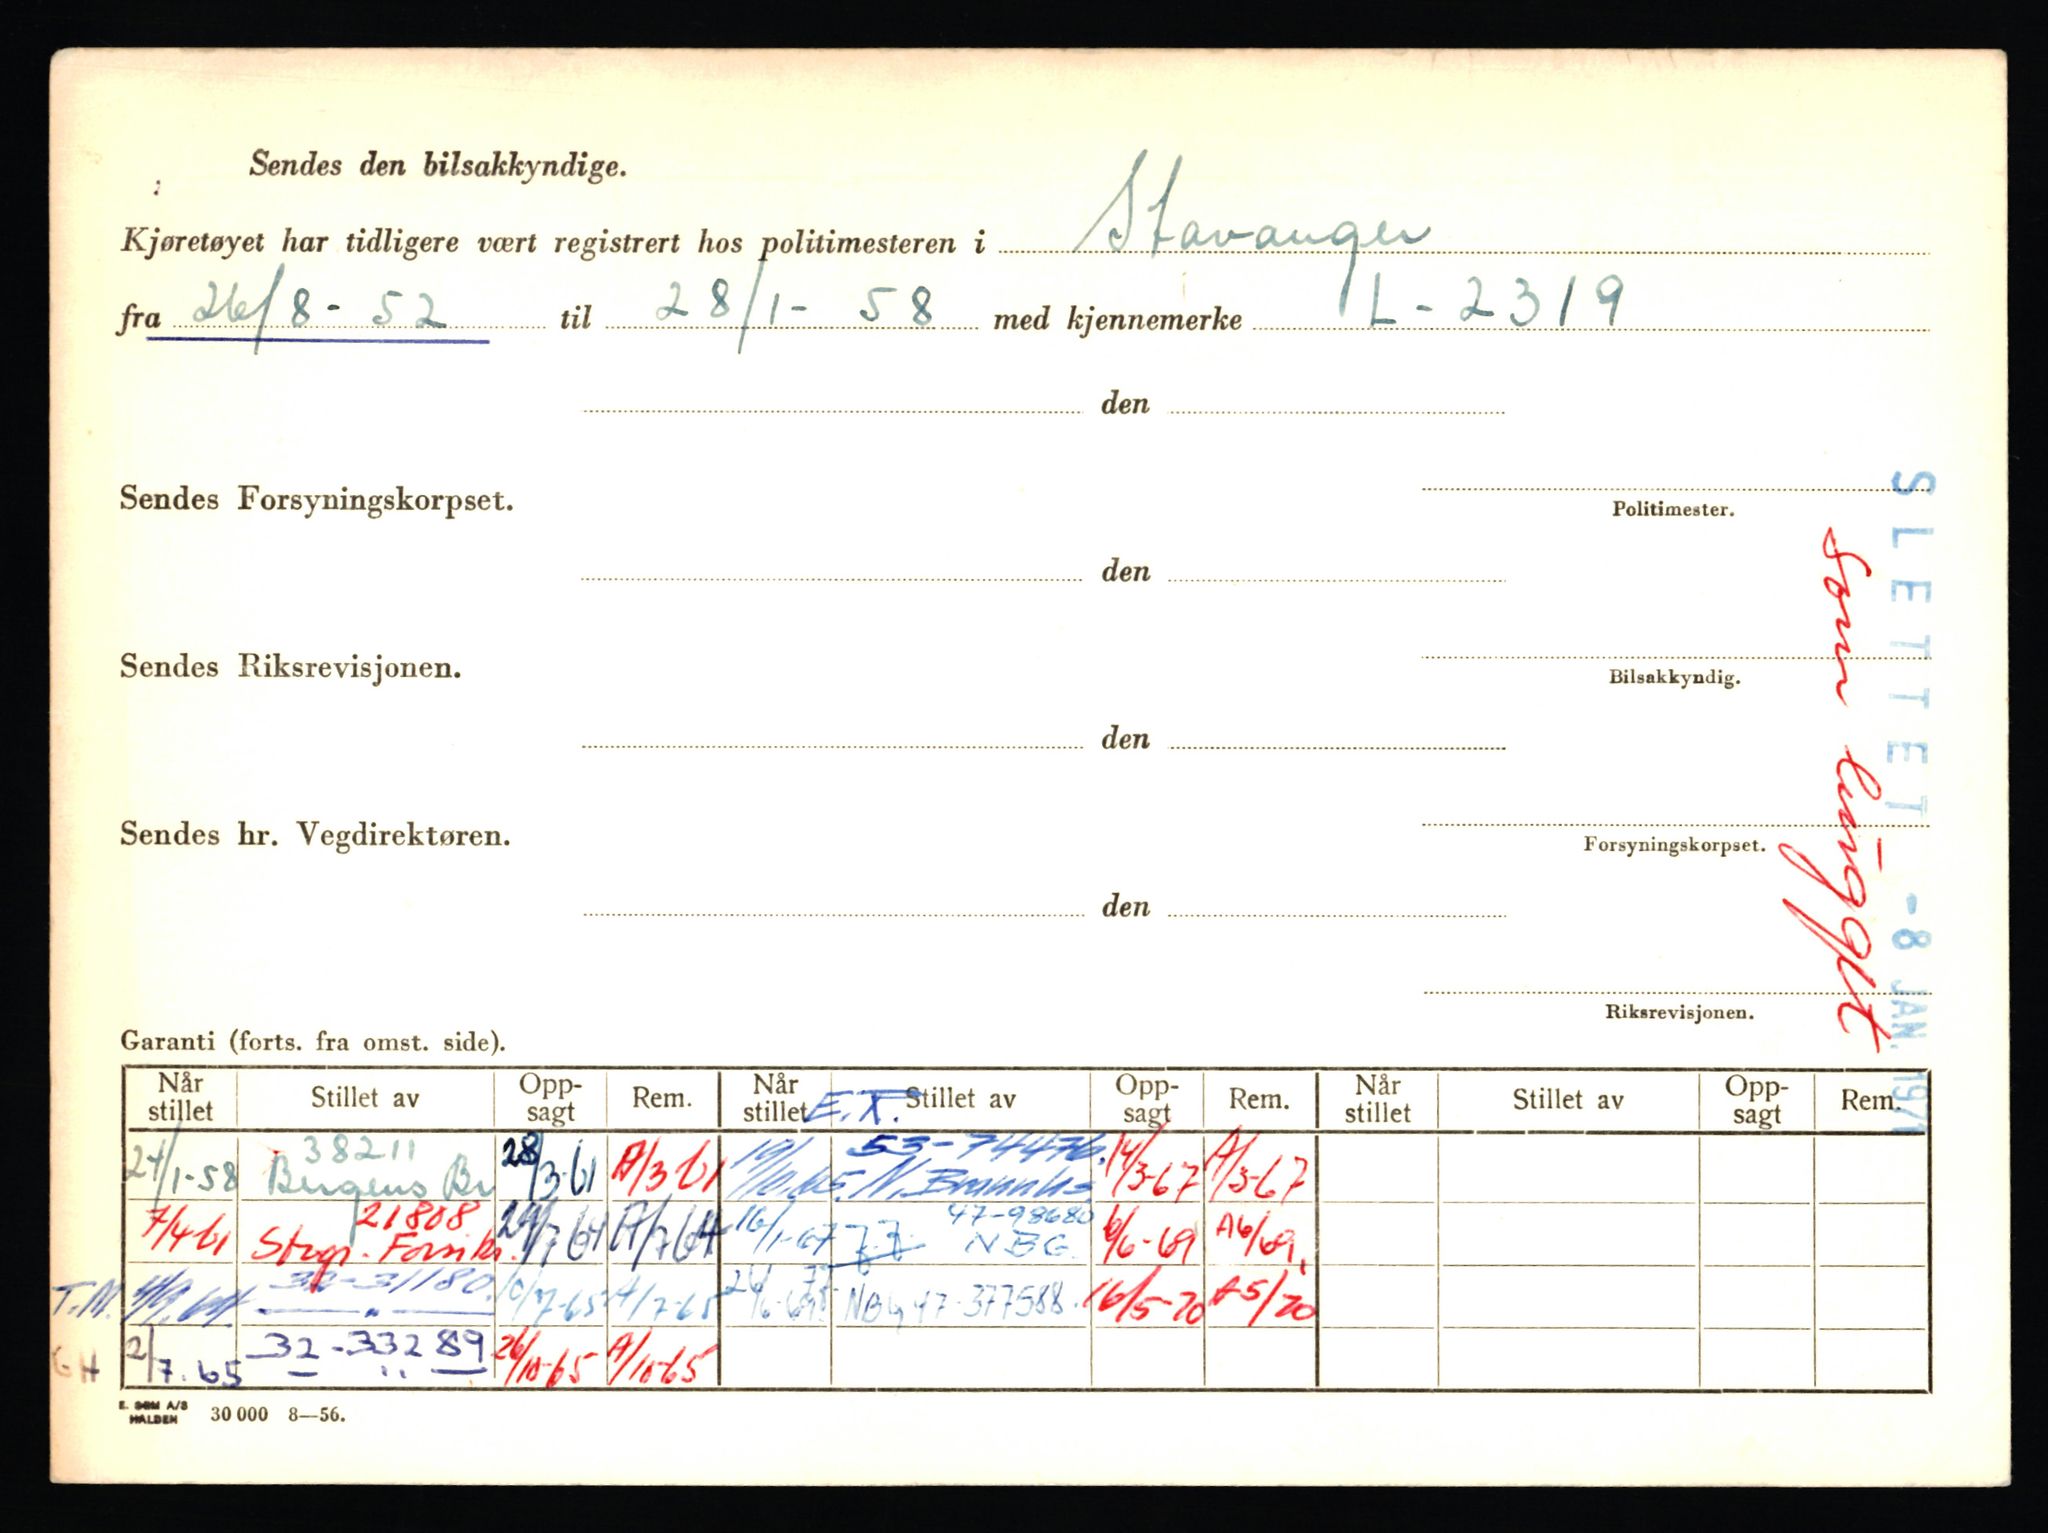 Sendes den bilsakkyndige.
Kjøretøyet har tidligere vært registrert hos politimesteren i Stavanger
fra 26/8 - 52 til 28/1 - 58 med kjennemerke L - 2319
den
Sendes Forsyningskorpset.
Politimester.
den
Sendes Riksrevisjonen.
Bilsakkyndig.
den
Sendes hr. Vegdirektøren.
Forsyningskorpset.
den
Riksrevisjonen.
SLETTET - 8 JAN. 1971
Som
Garanti (forts. fra omst. side).
Når stillet Stillet av Opp-sagt Rem. Når stillet Stillet av Opp-sagt Rem. Når stillet Stillet av Opp-sagt Rem.
E.T.
24/1-58 38211 Bergens Br 28/3-61 A/3-61 53-74476. 14/3-67 A/3-67
7/4-61 21808 Stvgr. Forsikr. A/7-64 16/1-67 47-98680 NBG. 6/6-69 A6/69
T.M. 32-31180. A/7-65 NBG 47-377588. 16/5-70 A5/70
GH 2/7.65 32-33289 26/10-65 A/10-65
E. SEM A/S
HALDEN 30 000 8—56.